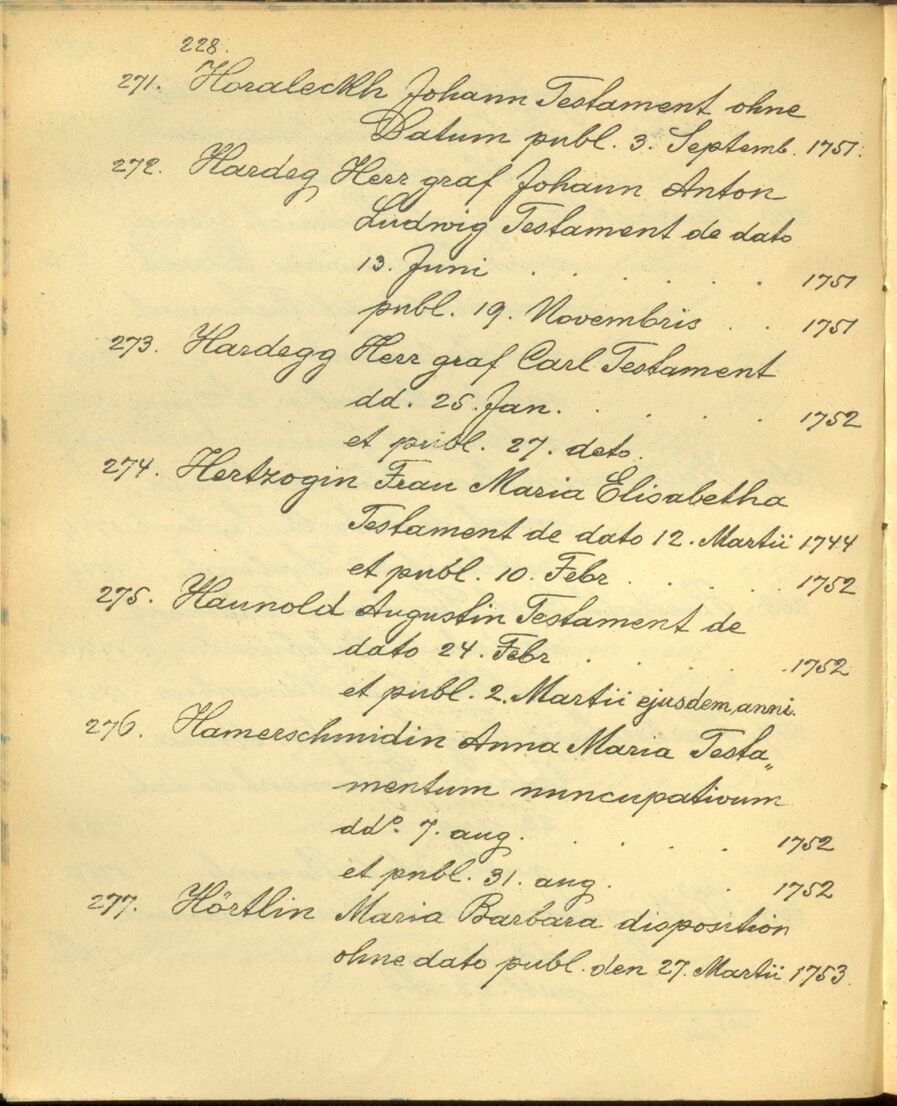 228.
271. Horaleckh Johann Testament ohne
Datum publ. 3. Septemb. 1751.
272. Hardeg Herr graf Johann Anton
Ludwig Testament de dato
13. Juni . . . . . 1751
publ. 19. Novembris . . 1751
273. Hardegg Herr graf Carl Testament
dd. 25. Jan. . . . . 1752
et publ. 27. deto.
274. Hertzogin Frau Maria Elisabetha
Testament de dato 12. Martii 1744
et publ. 10. Febr . . . 1752
275. Haunold Augustin Testament de
dato 24. Febr . . . . . 1752
et publ. 2. Martii ejusdem anni.
276. Hamerschmidin Anna Maria Testa„
mentum nuncupativum
ddo. 7. aug. . . . . 1752
et publ. 31. aug. . . 1752
277. Hörtlin Maria Barbara disposition
ohne dato publ. den 27. Martii 1753.